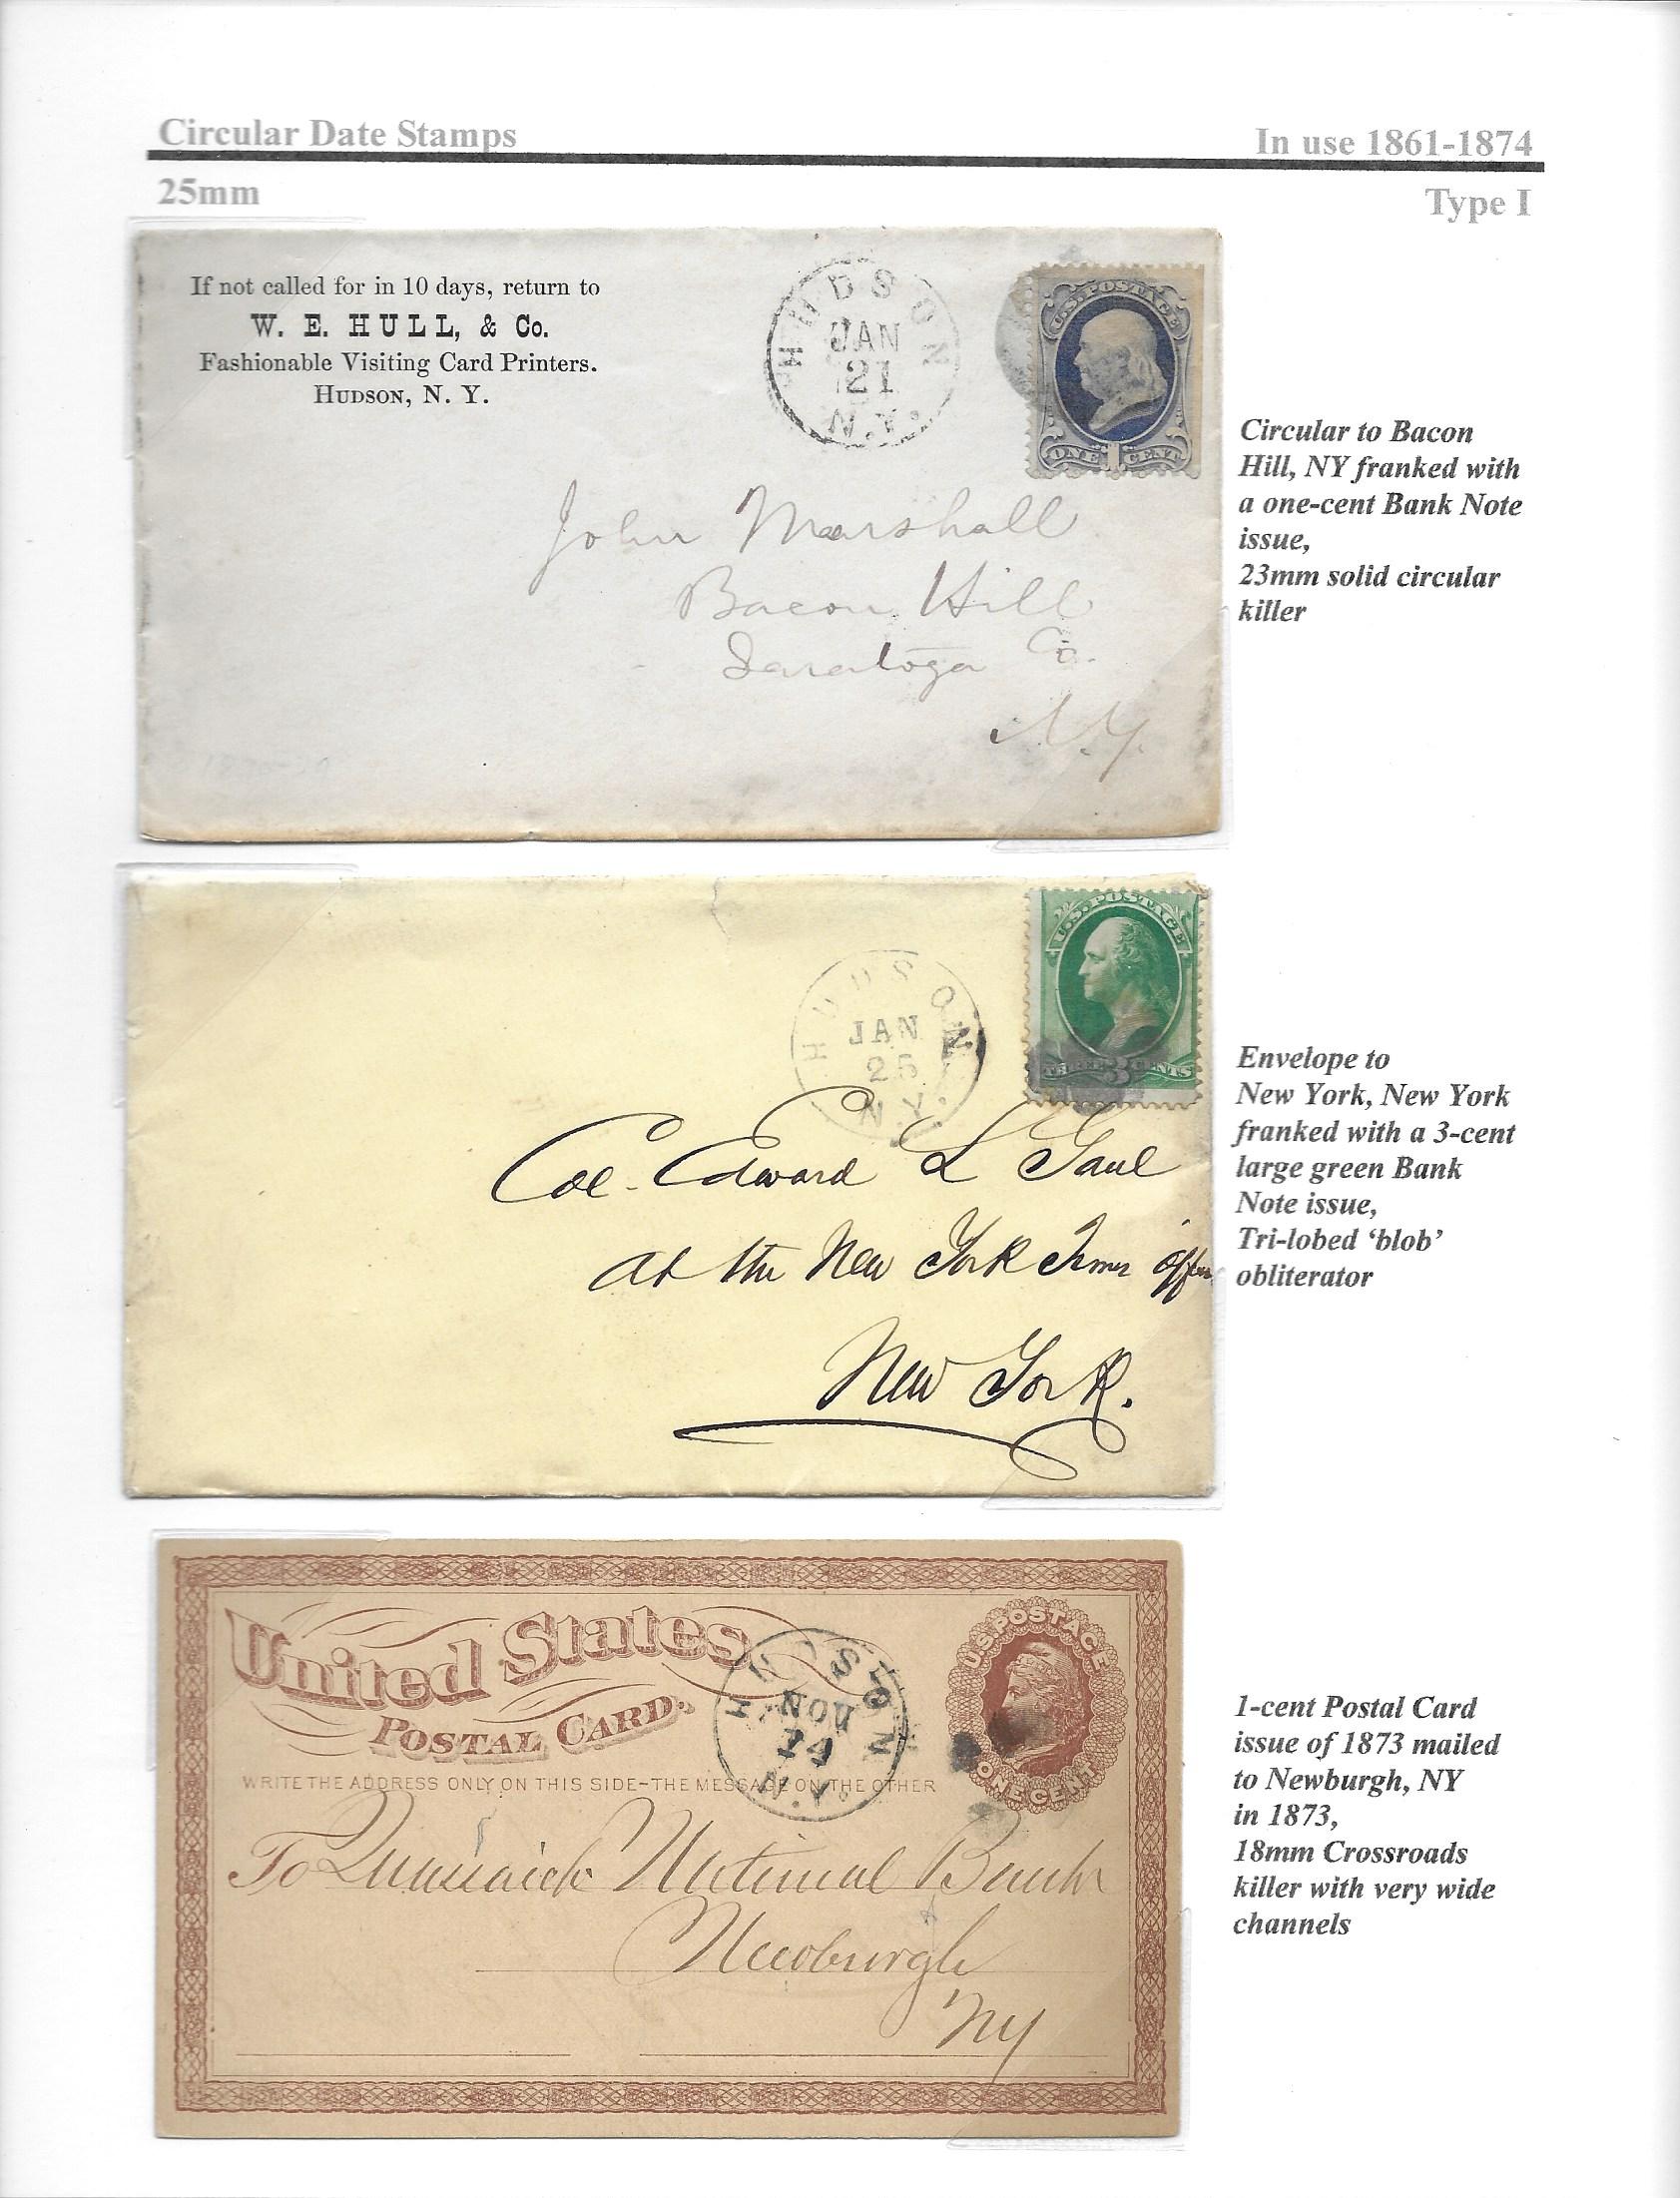 Circular Date Stamps
In use 1861-1874
25mm
Type I
If not called for in 10 days, return to
W. E. HULL, & Co.
Fashionable Visiting Card Printers.
HUDSON, N. Y.
HUDSON
JAN
21
N.Y.
U.S. POSTAGE
ONE 1 CENT
John Marshall
Bacon Hill
Saratoga Co.
N.Y.
Circular to Bacon
Hill, NY franked with
a one-cent Bank Note
issue,
23mm solid circular
killer
HUDSON
JAN
25
N.Y.
U.S. POSTAGE
THREE 3 CENTS
Col. Edward L Gaul
at the New York Times office
New York.
Envelope to
New York, New York
franked with a 3-cent
large green Bank
Note issue,
Tri-lobed ‘blob’
obliterator
United States
POSTAL CARD.
HUDSON
NOV
14
N.Y.
U.S. POSTAGE
ONE CENT
WRITE THE ADDRESS ONLY ON THIS SIDE-THE MESSAGE ON THE OTHER
To Quassaick National Bank
Newburgh
NY
1-cent Postal Card
issue of 1873 mailed
to Newburgh, NY
in 1873,
18mm Crossroads
killer with very wide
channels